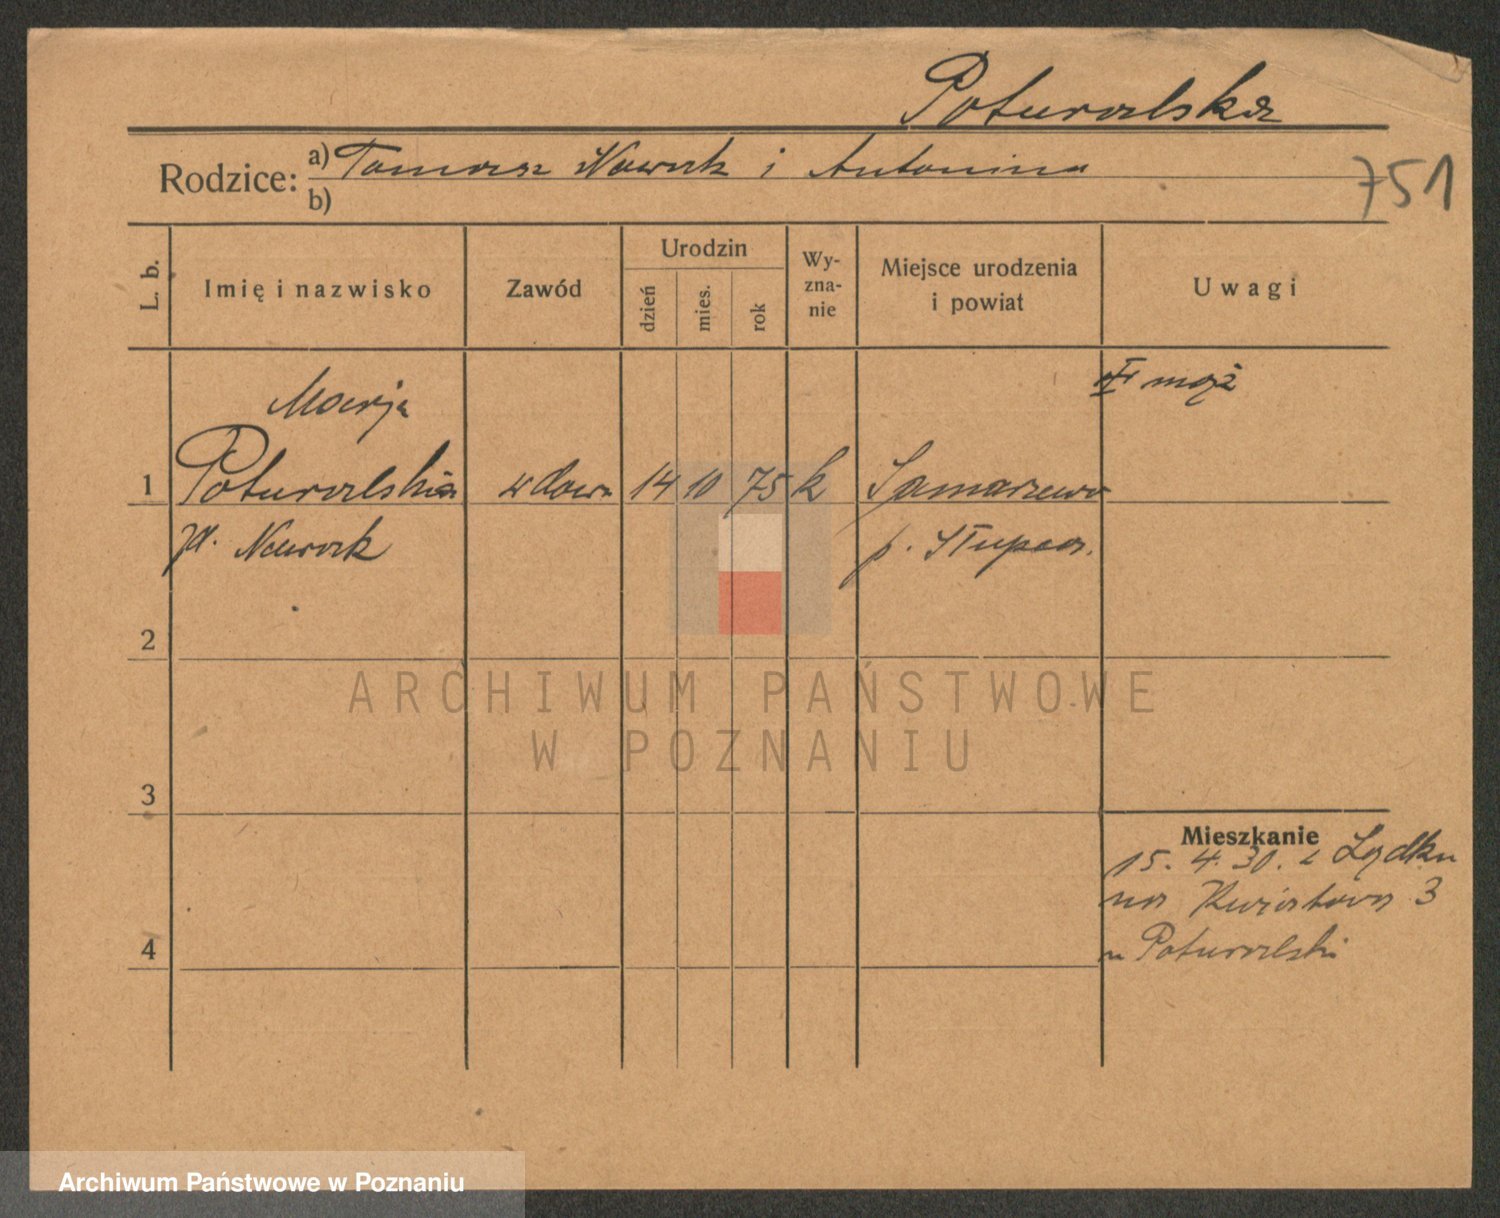 Poturalska
Rodzice: a) Tomasz Nowak i Antonina
b)
751
L. b.
Imię i nazwisko
Zawód
Urodzin
dzień
mies.
rok
Wy-
zna-
nie
Miejsce urodzenia
i powiat
Uwagi
II mąż
Marja
1 Poturalska wdowa 14 10 75 k Samarzewo
zd. Nowak p. Słupca.
2
ARCHIWUM PAŃSTWOWE
W POZNANIU
3
Mieszkanie
15. 4. 30. z Lądku
na Kwiatowa 3
u Poturalski
4
Archiwum Państwowe w Poznaniu